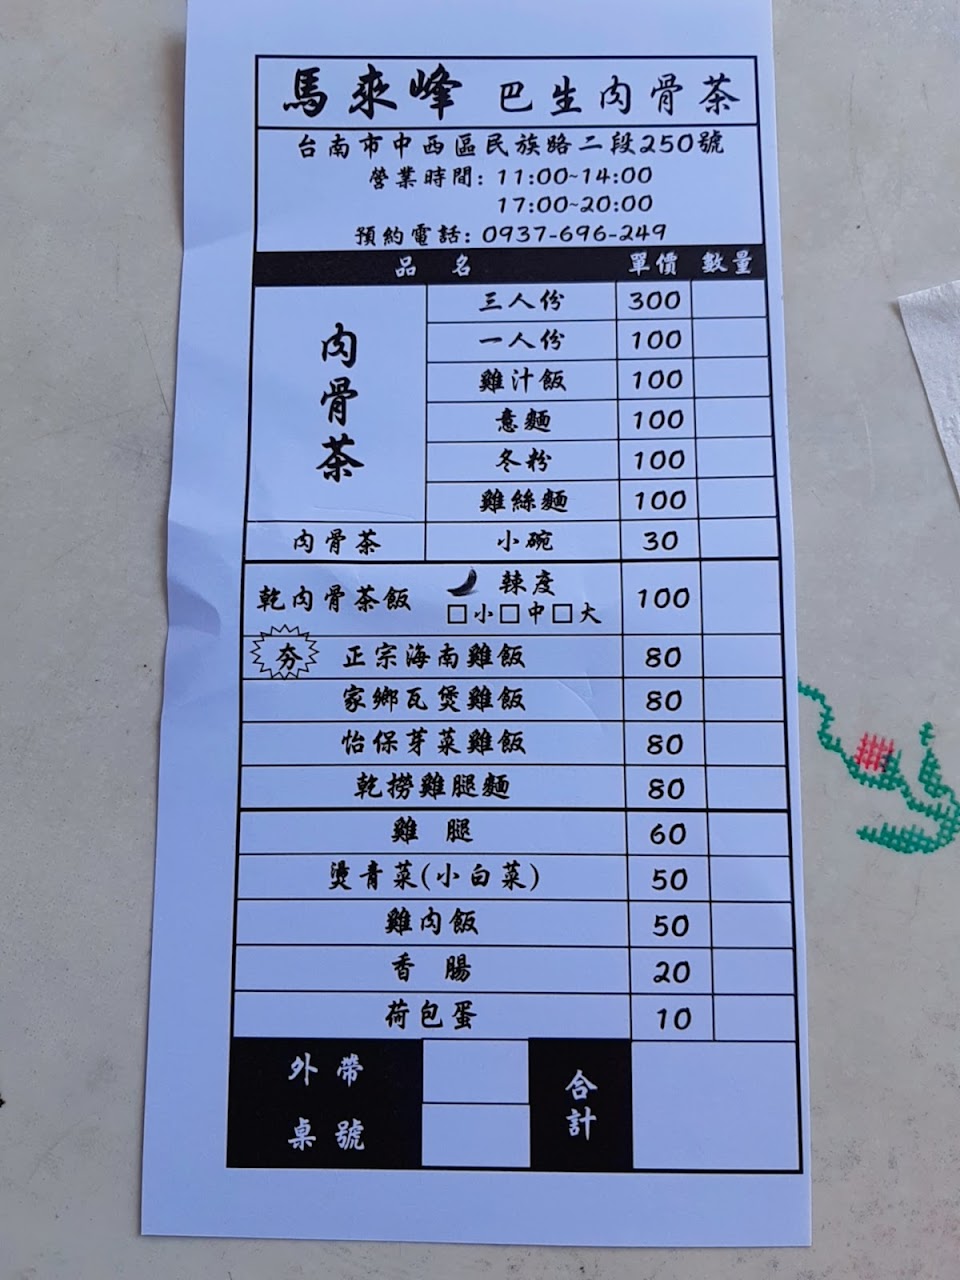 馬來峰 巴生肉骨茶
台南市中西區民族路二段250號
營業時間: 11:00~14:00
17:00~20:00
預約電話: 0937-696-249
品 名 單價 數量
肉骨茶
三人份 300
一人份 100
雞汁飯 100
意麵 100
冬粉 100
雞絲麵 100
肉骨茶 小碗 30
乾肉骨茶飯 辣度 100
□小□中□大
夯 正宗海南雞飯 80
家鄉瓦煲雞飯 80
怡保芽菜雞飯 80
乾撈雞腿麵 80
雞 腿 60
燙青菜(小白菜) 50
雞肉飯 50
香 腸 20
荷包蛋 10
外 帶
桌 號
合計